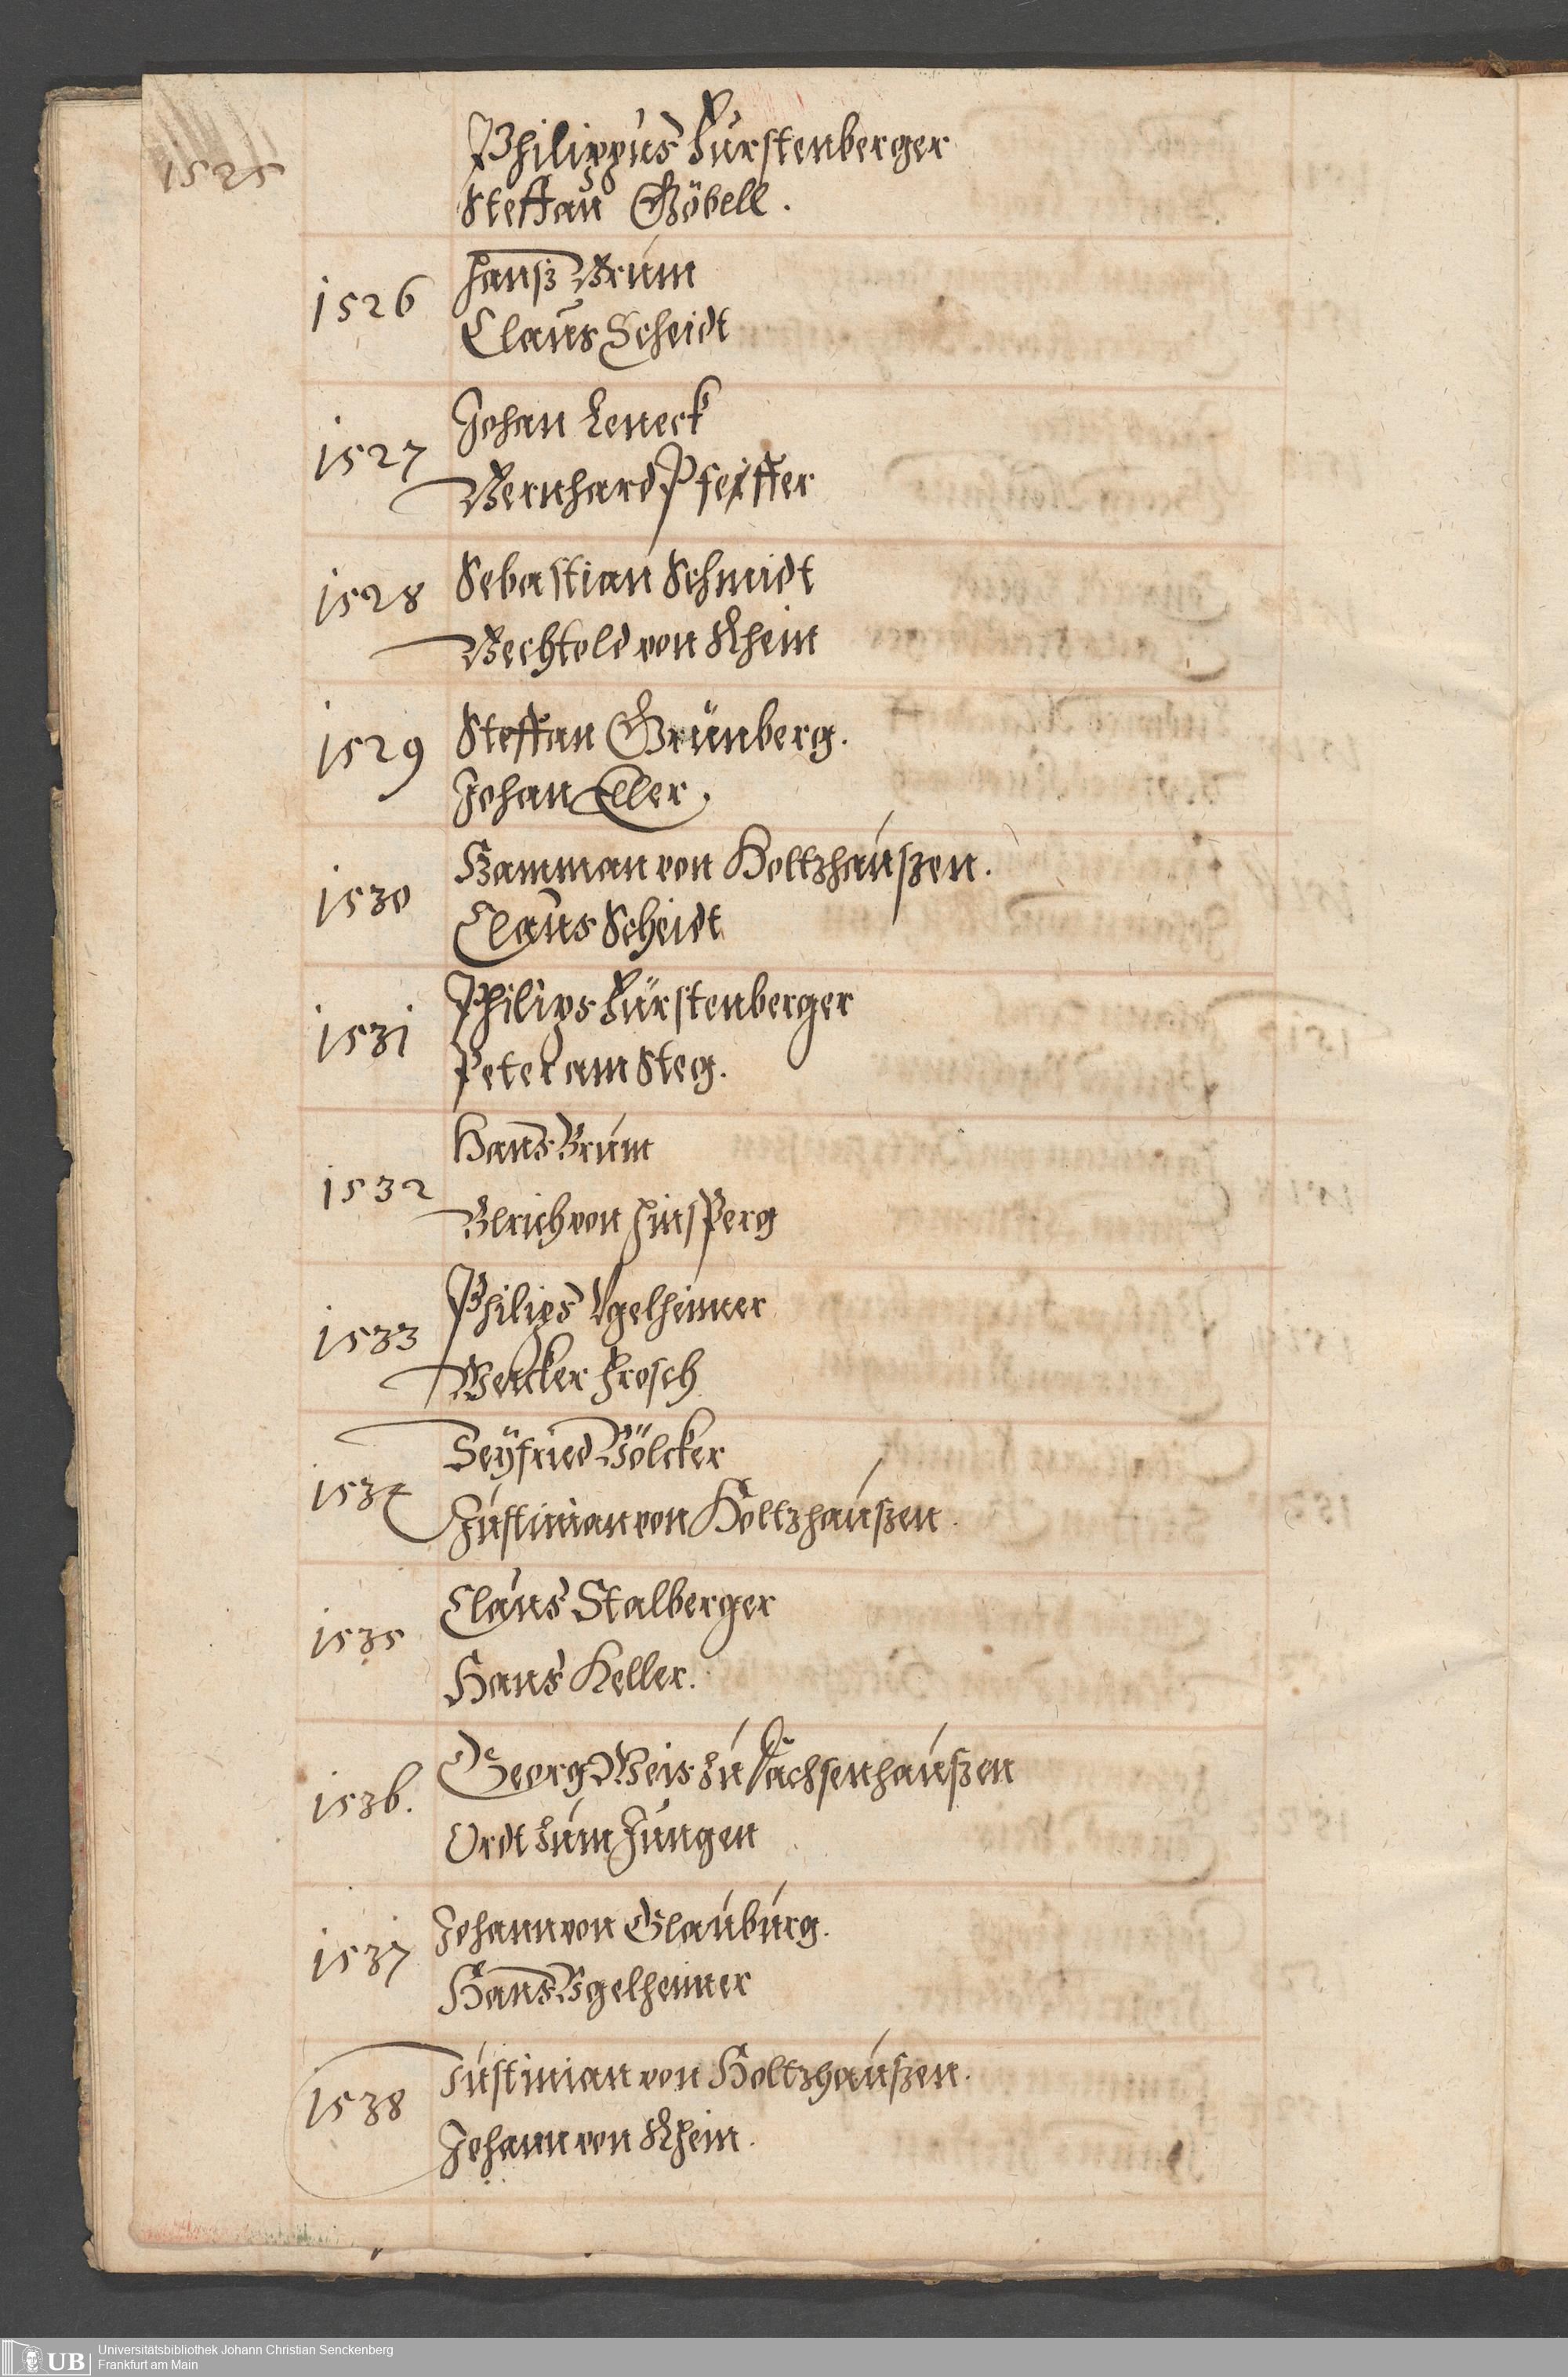 1525
Philippus Fürstenberger
Steffan Göbell.
1526
Hansz Brum
Claus Scheidt
1527
Johan Leneck
Bernhard Pfeiffer
1528
Sebastian Schmidt
Bechtold von Rhein
1529
Steffan Grünberg.
Johan Eller.
1530
Hamman von Holtzhauszen.
Claus Scheidt
1531
Philips Fürstenberger
Peter am Steg.
1532
Hans Brum
Vlrich von Hinsperg
1533
Philips Vgelheimer
Weicker Frosch
1534
Seÿfried Völcker
Justinian von Holtzhauszen.
1535
Claus Stalberger
Hans Keller.
1536.
Georg Weis zu Sachsenhauszen
Ordt zum Jungen
1537
Johann von Glauburg.
Hans Vgelheimer
1538
Justinian von Holtzhauszen.
Johann von Rhein.
UB
Universitätsbibliothek Johann Christian Senckenberg
Frankfurt am Main